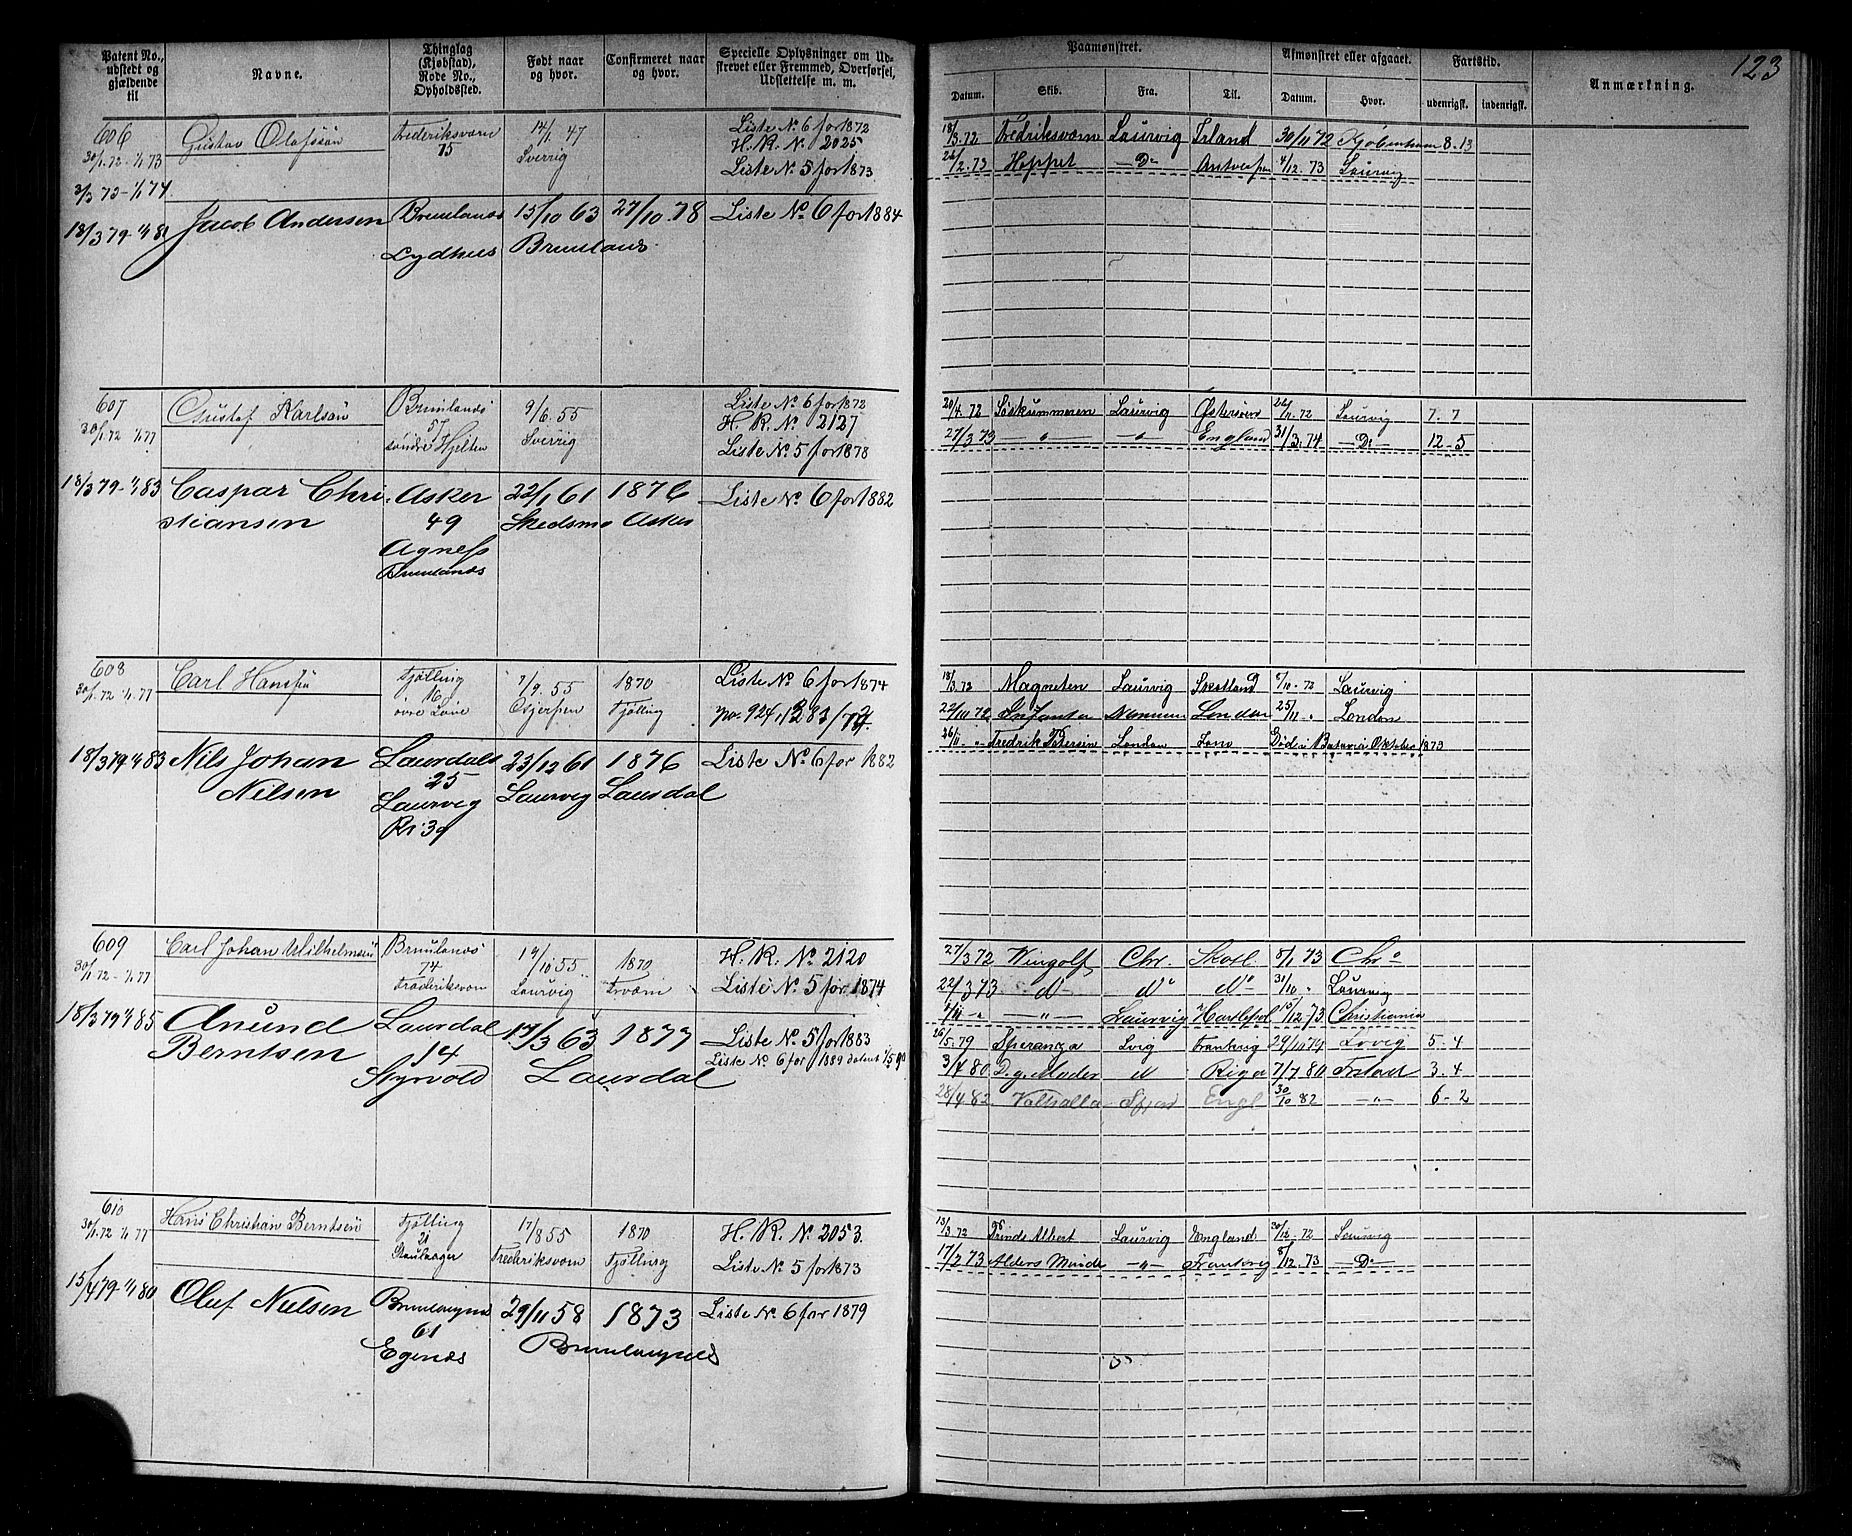 123
Patent No., udstedt og gjældende til
Navne.
Thinglag (Kjøbstad), Rode No., Opholdssted.
Født naar og hvor.
Confirmeret naar og hvor.
Specielle Oplysninger om Udskrevet eller Fremmed, Overførsel, Udslettelse m. m.
Paamønstret.
Afmønstret eller afgaaet.
Fartstid.
Anmærkning.
Datum. Skib. Fra. Til. Datum. Hvor. udenrigsk. indenrigsk.
606
30/1.72-1/1 73
3/3 73-1/1 74
Gustav Olafssön
Frederiksværn
15
14/1. 47
Sverrig
Liste No 6 for 1872
H. R. No 2025
Liste No 5 for 1873
18/3.72 Fredriksværn Laurvig Irland 30/11 72 Kjøbenhavn 8.13
22/2.73 Hoppet — Do Antverpen 4/12.73 Laurvig
18/3 79-1/1 81
Jacob Andersen
Brunlanæs
Lydhus
15/10 63
Brunlanæs
27/10.78
Liste No 6 for 1884
607
30/1.72 1/1 77
Gustaf Karlsön
Brunlanæs
57
söndre Hjelten
9/6.55
Sverrig
Liste No 6 for 1872
H. R. No 2127
Liste No 5 for 1878
20/4.72 Söskummeren Laurvig Østersöen 72 Laurvig 7.7
27/3 73 — " — — " — England 31/3.74 — Do — 12-5
18/3 79-1/1 83
Caspar Christiansen
Asker
49
Agness
Brunlanæs
22/1 61
Skedsmo
1876
Asker
Liste No 6 for 1882
608
30/1.72 1/1.77
Carl Hanssön
Tjølling
16
övre Love
7/9.55
Gjerpen
1870
Tjølling
Liste No 6 for 1874
18/3.72 Magneten Laurvig Skotland 5/10.72 Laurvig
22/10 72 London 25/11 " London
26/11 " Fredrik Petersen London Död i Batavia Oktober 1873
18/3 79 1/1 83
Nils Johan Nielsen
Laurdal
25
Laurvig
23/12 61
Laurvig
1876
Laurdal
Liste No 6 for 1882
609
30/1.72-1/1.77
Carl Johan Wilhelmsen
Brunlanæs
74
Fræderiksværn
14/10 55
Laurvig
1870
Frværn
H. R. No 2120
Liste No 5 for 1874
27/3 72 Vingolf Chr. Skotl. 5/1 73 Chr a
22/3 73 — do — do do 31/10 " Laurvig
— " — Laurvig Hartlepol 12 73 Christiania
18/3 79 1/1 85
Anund Berntsen
Laurdal
14
Styrvold
17/3 63
Laurdal
1877
Liste No 5 for 1883
Liste No 6 for 1889
26/5.79 Speranza Lvig Frankrig 29/11 79 Lvig 5-4
3/4 80 D. g. Moder do Riga 7/7 80 Fristad 3.4
28/4 82 Valhalla Engl 30/10 82 — " — 6-2
610
30/1.72 1/1.77
Hans Christian Berntsen
Tjølling
21
17/8 55
Frederiksværn
1870
Tjølling
H. R. No 2053.
Liste No 5 for 1873
13/3.72 Prinds Albert Laurvig England 30/12.72 Laurvig
17/2 73 Alders Minde — " — Frankrig 8/12.73 — Do —
15/4 79-1/1 80
Oluf Nielsen
61
Egenæs
29/11 58
1873
Liste No 6 for 1879